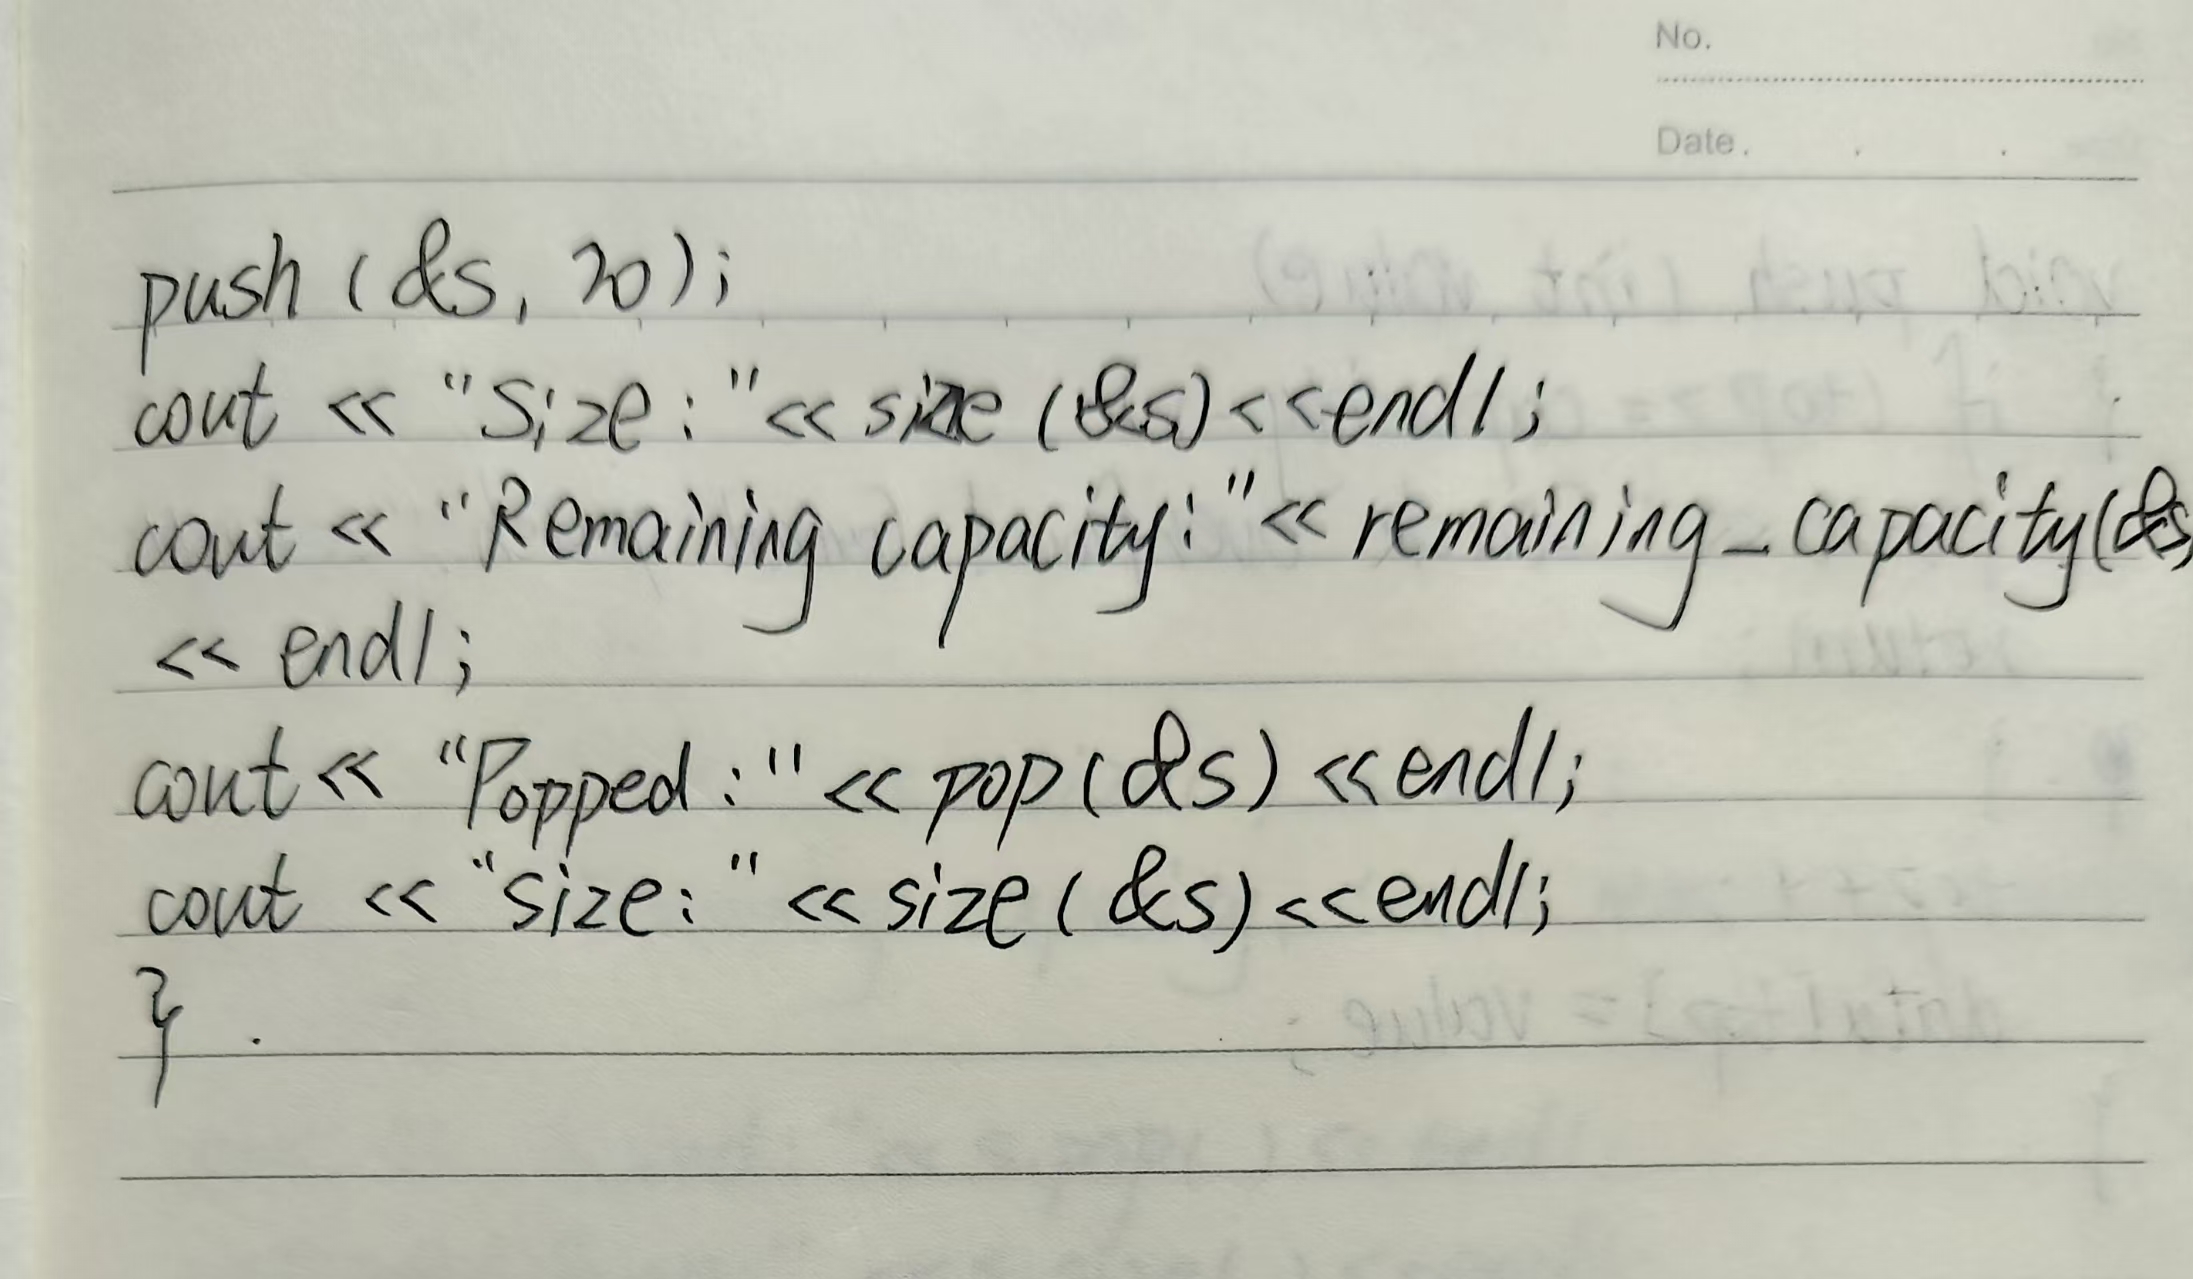 No.
Date.
push (&s, 20);
cout << "Size : "<< size (&s) <<endl;
cout << "Remaining capacity: "<< remaining_capacity(&s)
<< endl;
cout << "Popped : " << pop(&s) <<endl;
cout << "size: " << size (&s) <<endl;
}